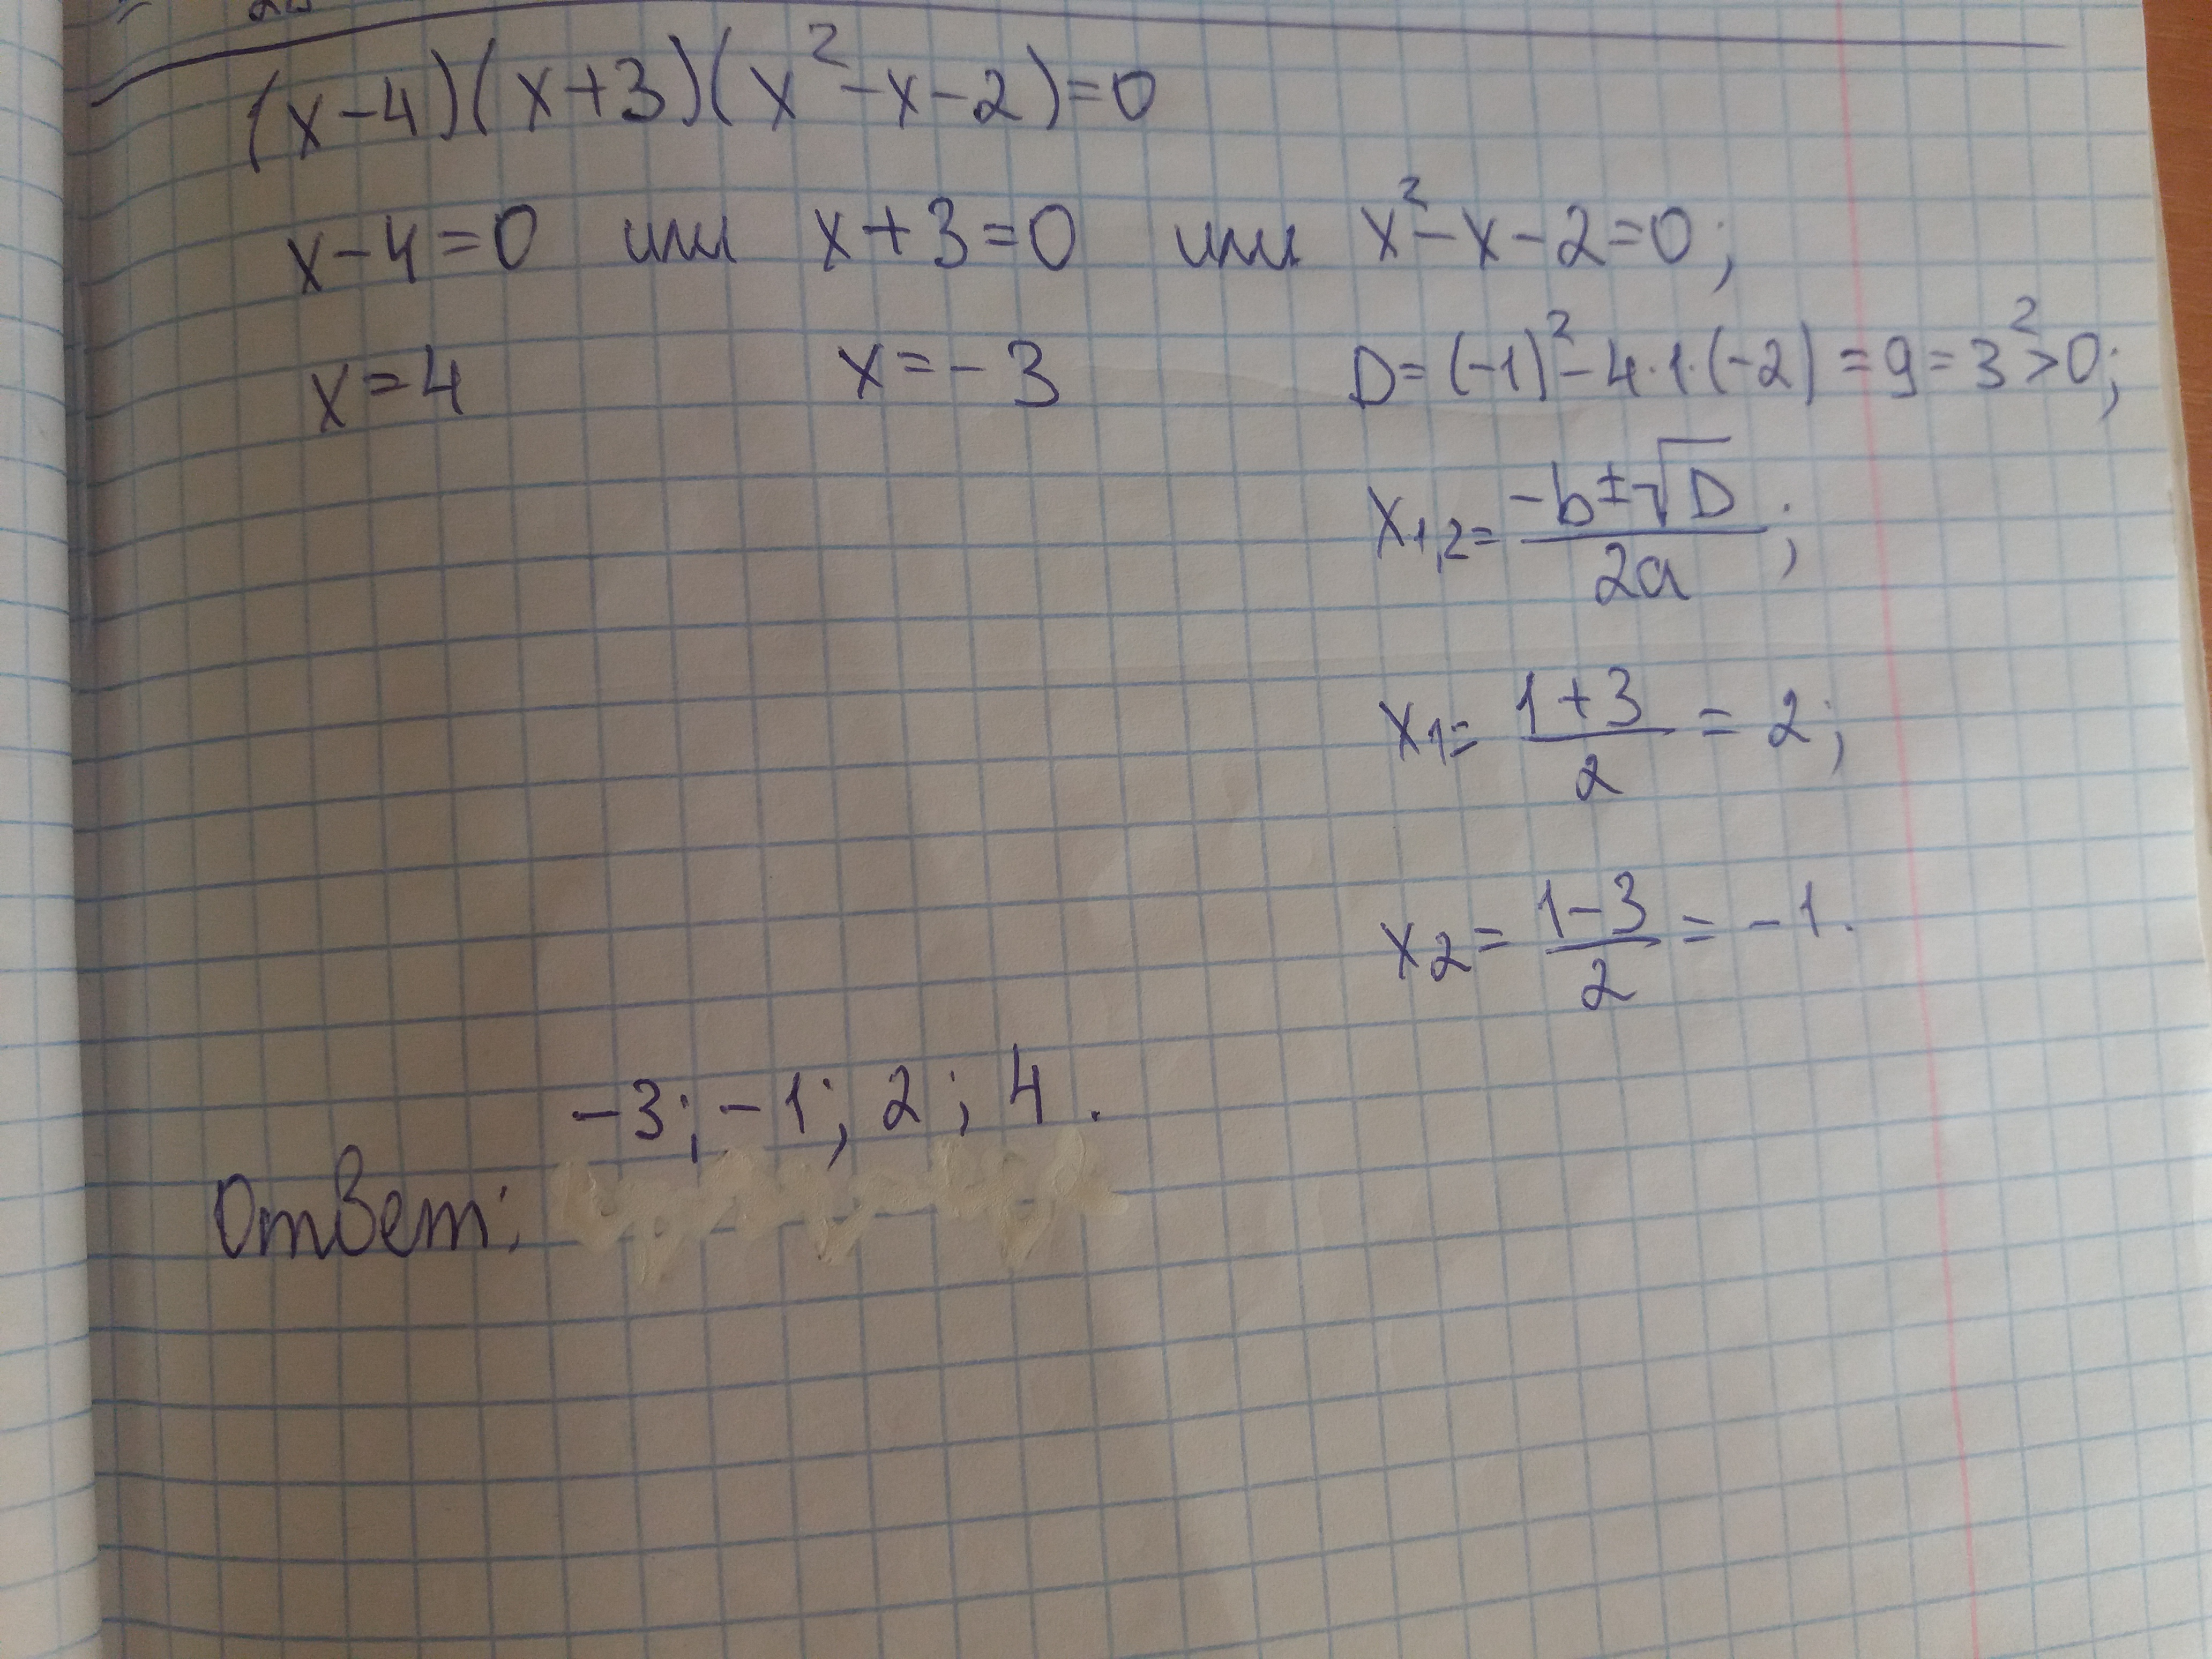 (x-4)(x+3)(x²-x-2)=0
x-4=0 или x+3=0 или x²-x-2=0;
x=4 x=-3 D=(-1)²-4·1·(-2)=9=3²>0;
x1,2=(-b±√D)/2a;
x1=(1+3)/2=2;
x2=(1-3)/2=-1.
-3; -1; 2; 4.
Ответ: